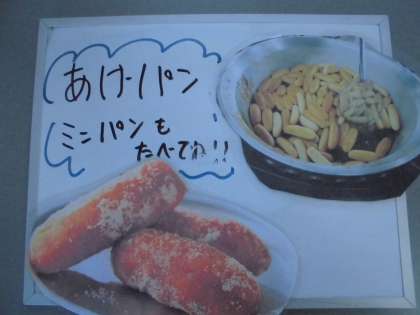 あげパン
ミニパンも
たべてね!!